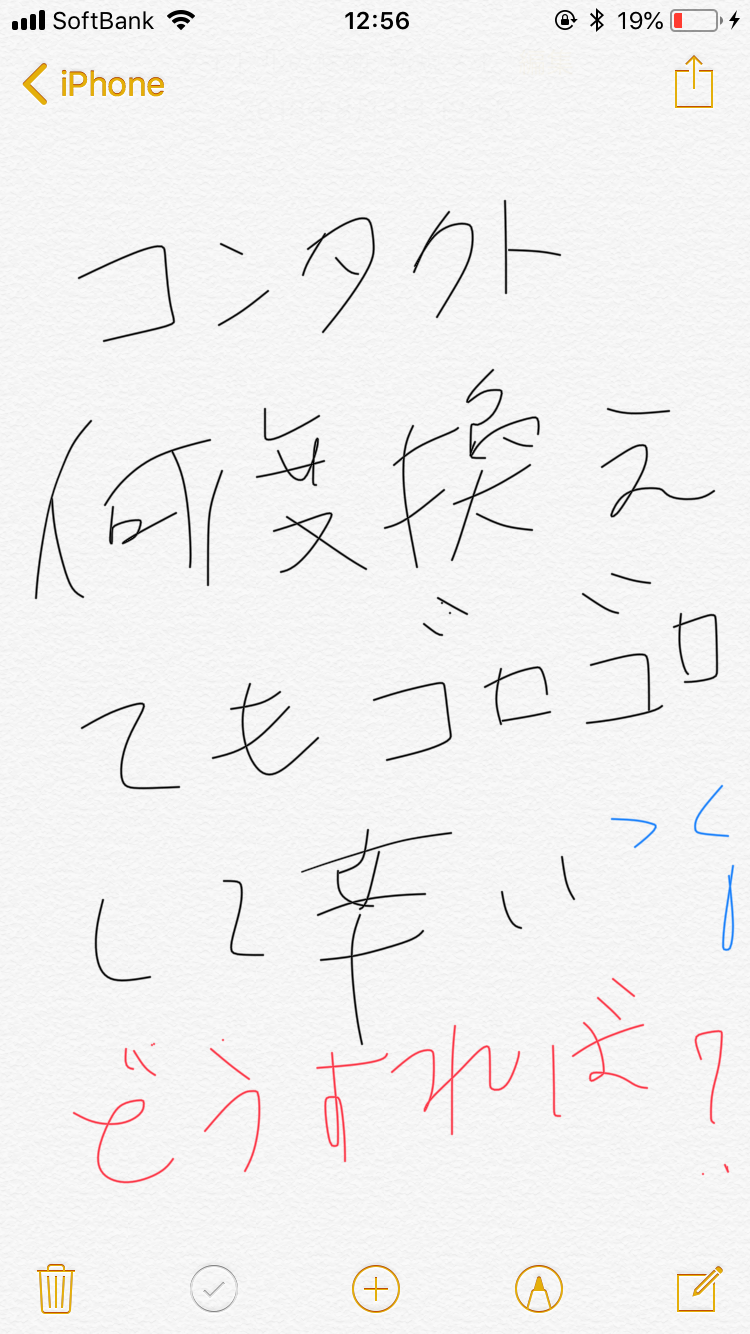 SoftBank 12:56 19%
iPhone
コンタクト
何度換え
てもゴロゴロ
して辛い
どうすれば？